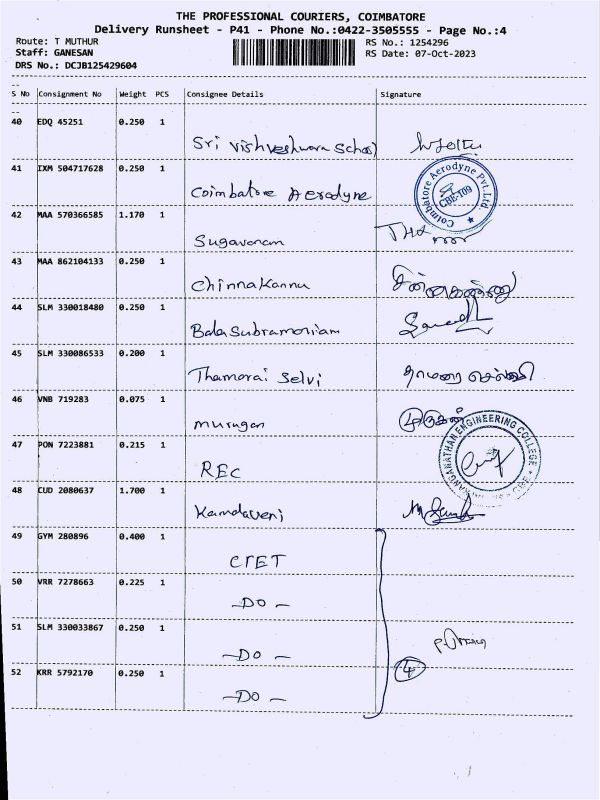 THE PROFESSIONAL COURIERS, COIMBATORE
Delivery Runsheet - P41 - Phone No.:0422-3505555 - Page No.:4
Route: T MUTHUR RS No.: 1254296
Staff: GANESAN RS Date: 07-Oct-2023
DRS No.: DCJB125429604
S No Consignment No Weight PCS Consignee Details Signature
40 EDQ 45251 0.250 1
Sri Vishveshwara School
41 IXM 504717628 0.250 1
Coimbatore Aerodyne
Coimbatore Aerodyne Pvt.Ltd.
CBE-109
42 MAA 570366585 1.170 1
Sugavanam
43 MAA 862104133 0.250 1
Chinnakannu சின்னகண்ணு
44 SLM 330018480 0.250 1
Bala Subramoniam
45 SLM 330086533 0.200 1
Thamarai Selvi தாமரை செல்வி
46 VNB 719283 0.075 1
murugan முருகன்
47 PON 7223881 0.215 1
REC
RANGANATHAN ENGINEERING COLLEGE CBE
48 CUD 2080637 1.700 1
Kamdaveni
49 GYM 280896 0.400 1
CIET
50 VRR 7278663 0.225 1
-DO-
51 SLM 330033867 0.250 1
-DO-
4
52 KRR 5792170 0.250 1
-DO-